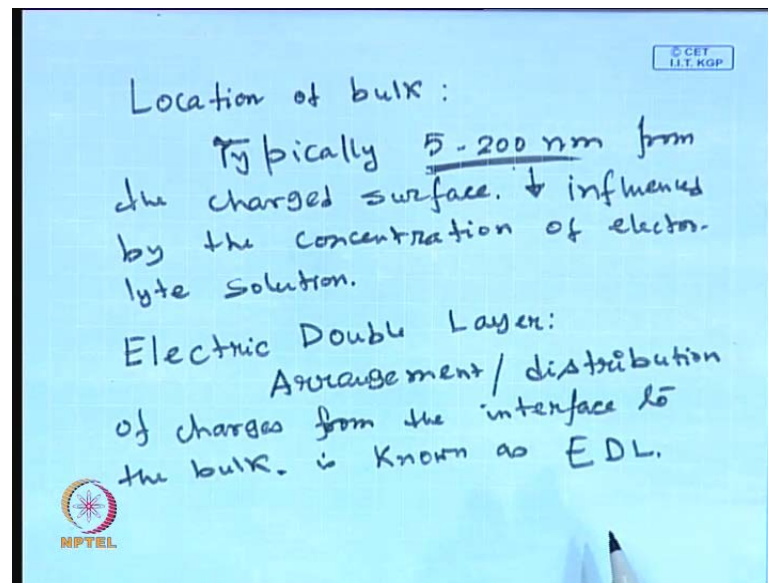 © CET
I.I.T. KGP
Location of bulk :
Typically 5 - 200 nm from
the charged surface. & influenced
by the concentration of electro-
lyte solution.
Electric Double Layer:
Arrangement / distribution
of charges from the interface to
the bulk. is known as EDL.
NPTEL